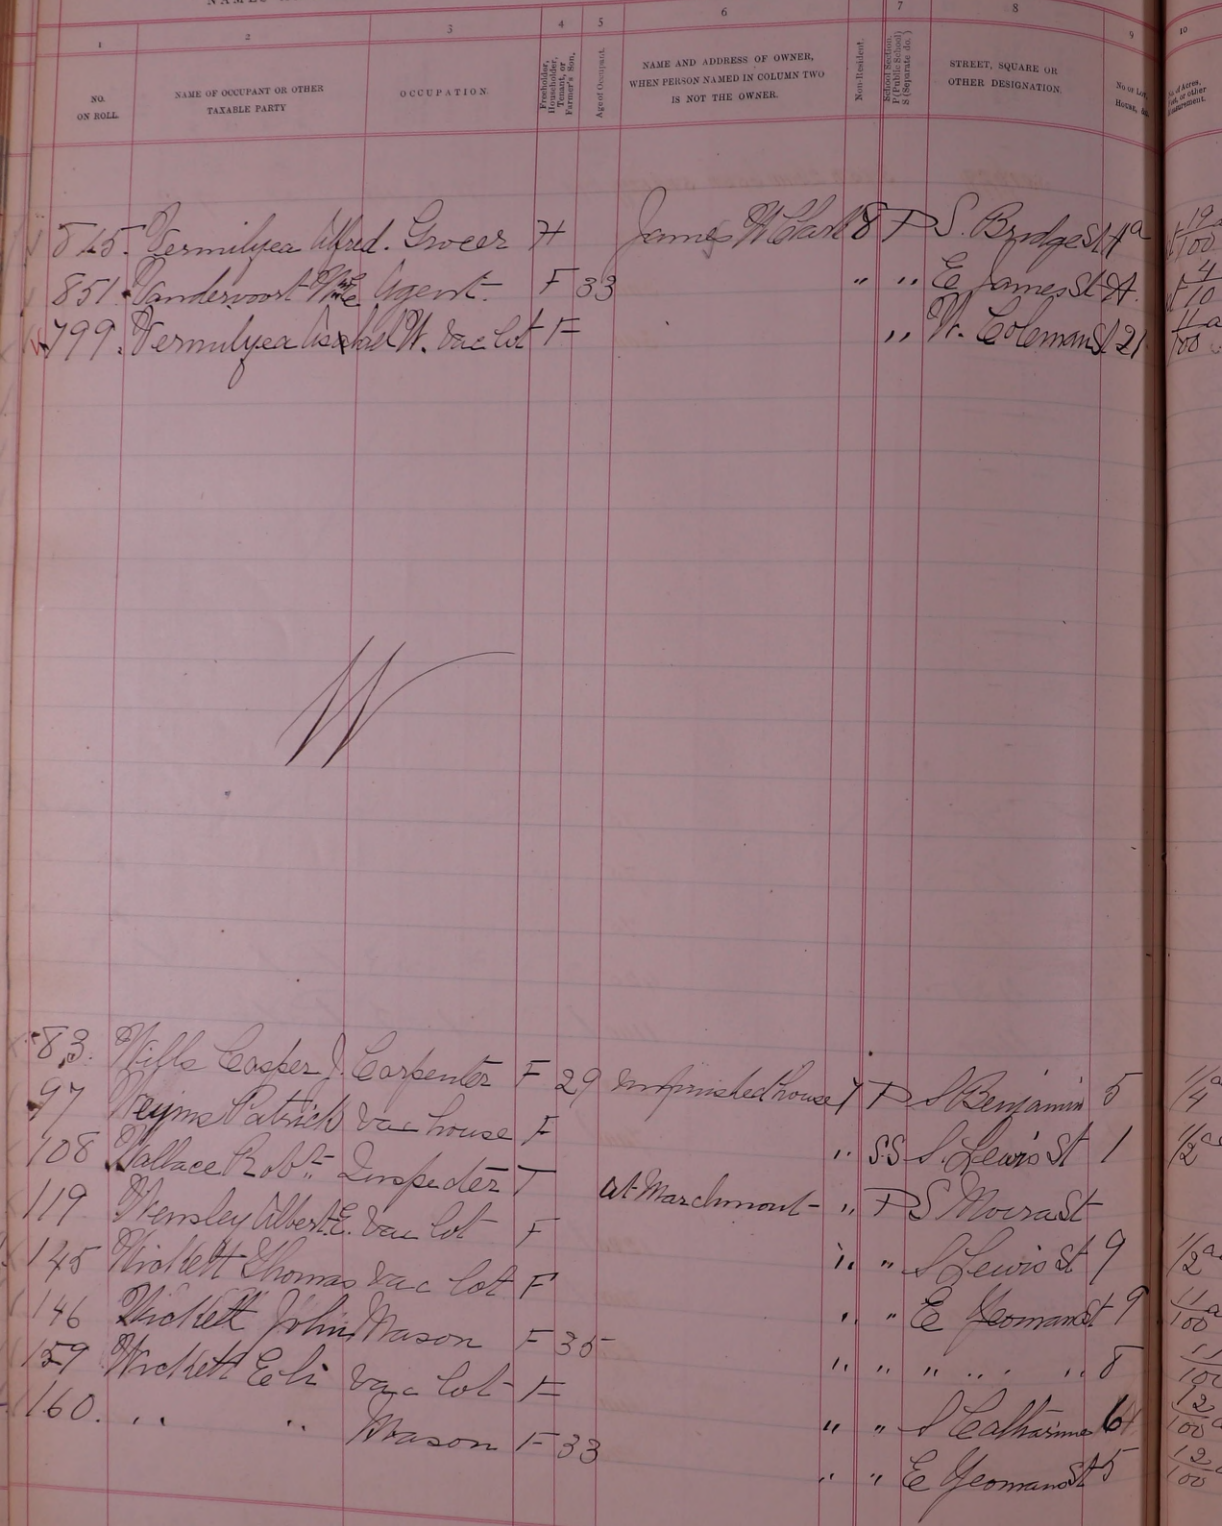 1 2 3 4 5 6 7 8 9 10
NO. ON ROLL.
NAME OF OCCUPANT OR OTHER TAXABLE PARTY
OCCUPATION.
Freeholder, Householder, Tenant, or Farmer's Son.
Age of Occupant.
NAME AND ADDRESS OF OWNER, WHEN PERSON NAMED IN COLUMN TWO IS NOT THE OWNER.
Non-Resident.
School Section. P (Public School) S (Separate do.)
STREET, SQUARE OR OTHER DESIGNATION.
845. Vermilyea Alfred. Grocer H James W Clark 8 P S. Bridge St 4a
851. Vandervoort Agent. F 33 " " E James St
799. Vermilyea W. Vac lot F " W. Coleman St 21
W
83. Wills Casper J. Carpenter F 29 unfinished house 7 P S Benjamin 5
97 Patrick Vac house F " SS S. Lewis St 1
108 Wallace Robt Inspector T at Marchmont " P S Moira St
119 Wensley Albert E. Vac lot F " " S Lewis St 9
145 Wickett Thomas Vac lot F " " E Yeoman St 9
146 Wickett John Mason F 35 " " " " " 8
159 Wickett Eli Vac lot F " " S Catharine 64
160. " " Mason F 33 " " E Yeoman St 5